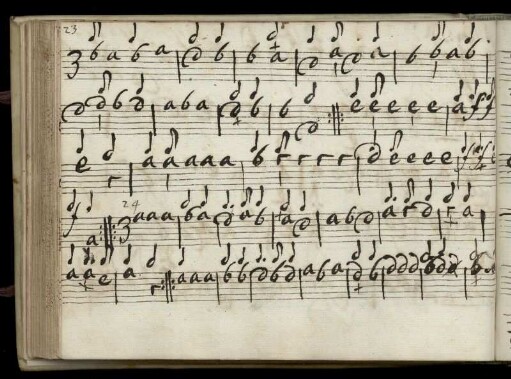 23
3 b a b a d b b a d a d a b b a b
d d b d a b a d b b d e e e e e a f f
e r a a a a a b r r r r d e e e e f f
f a 24 3 a a a b a d a b a d a b d a r d r a
a a e a r a a a b b d b d a b a d b d d d b d d b